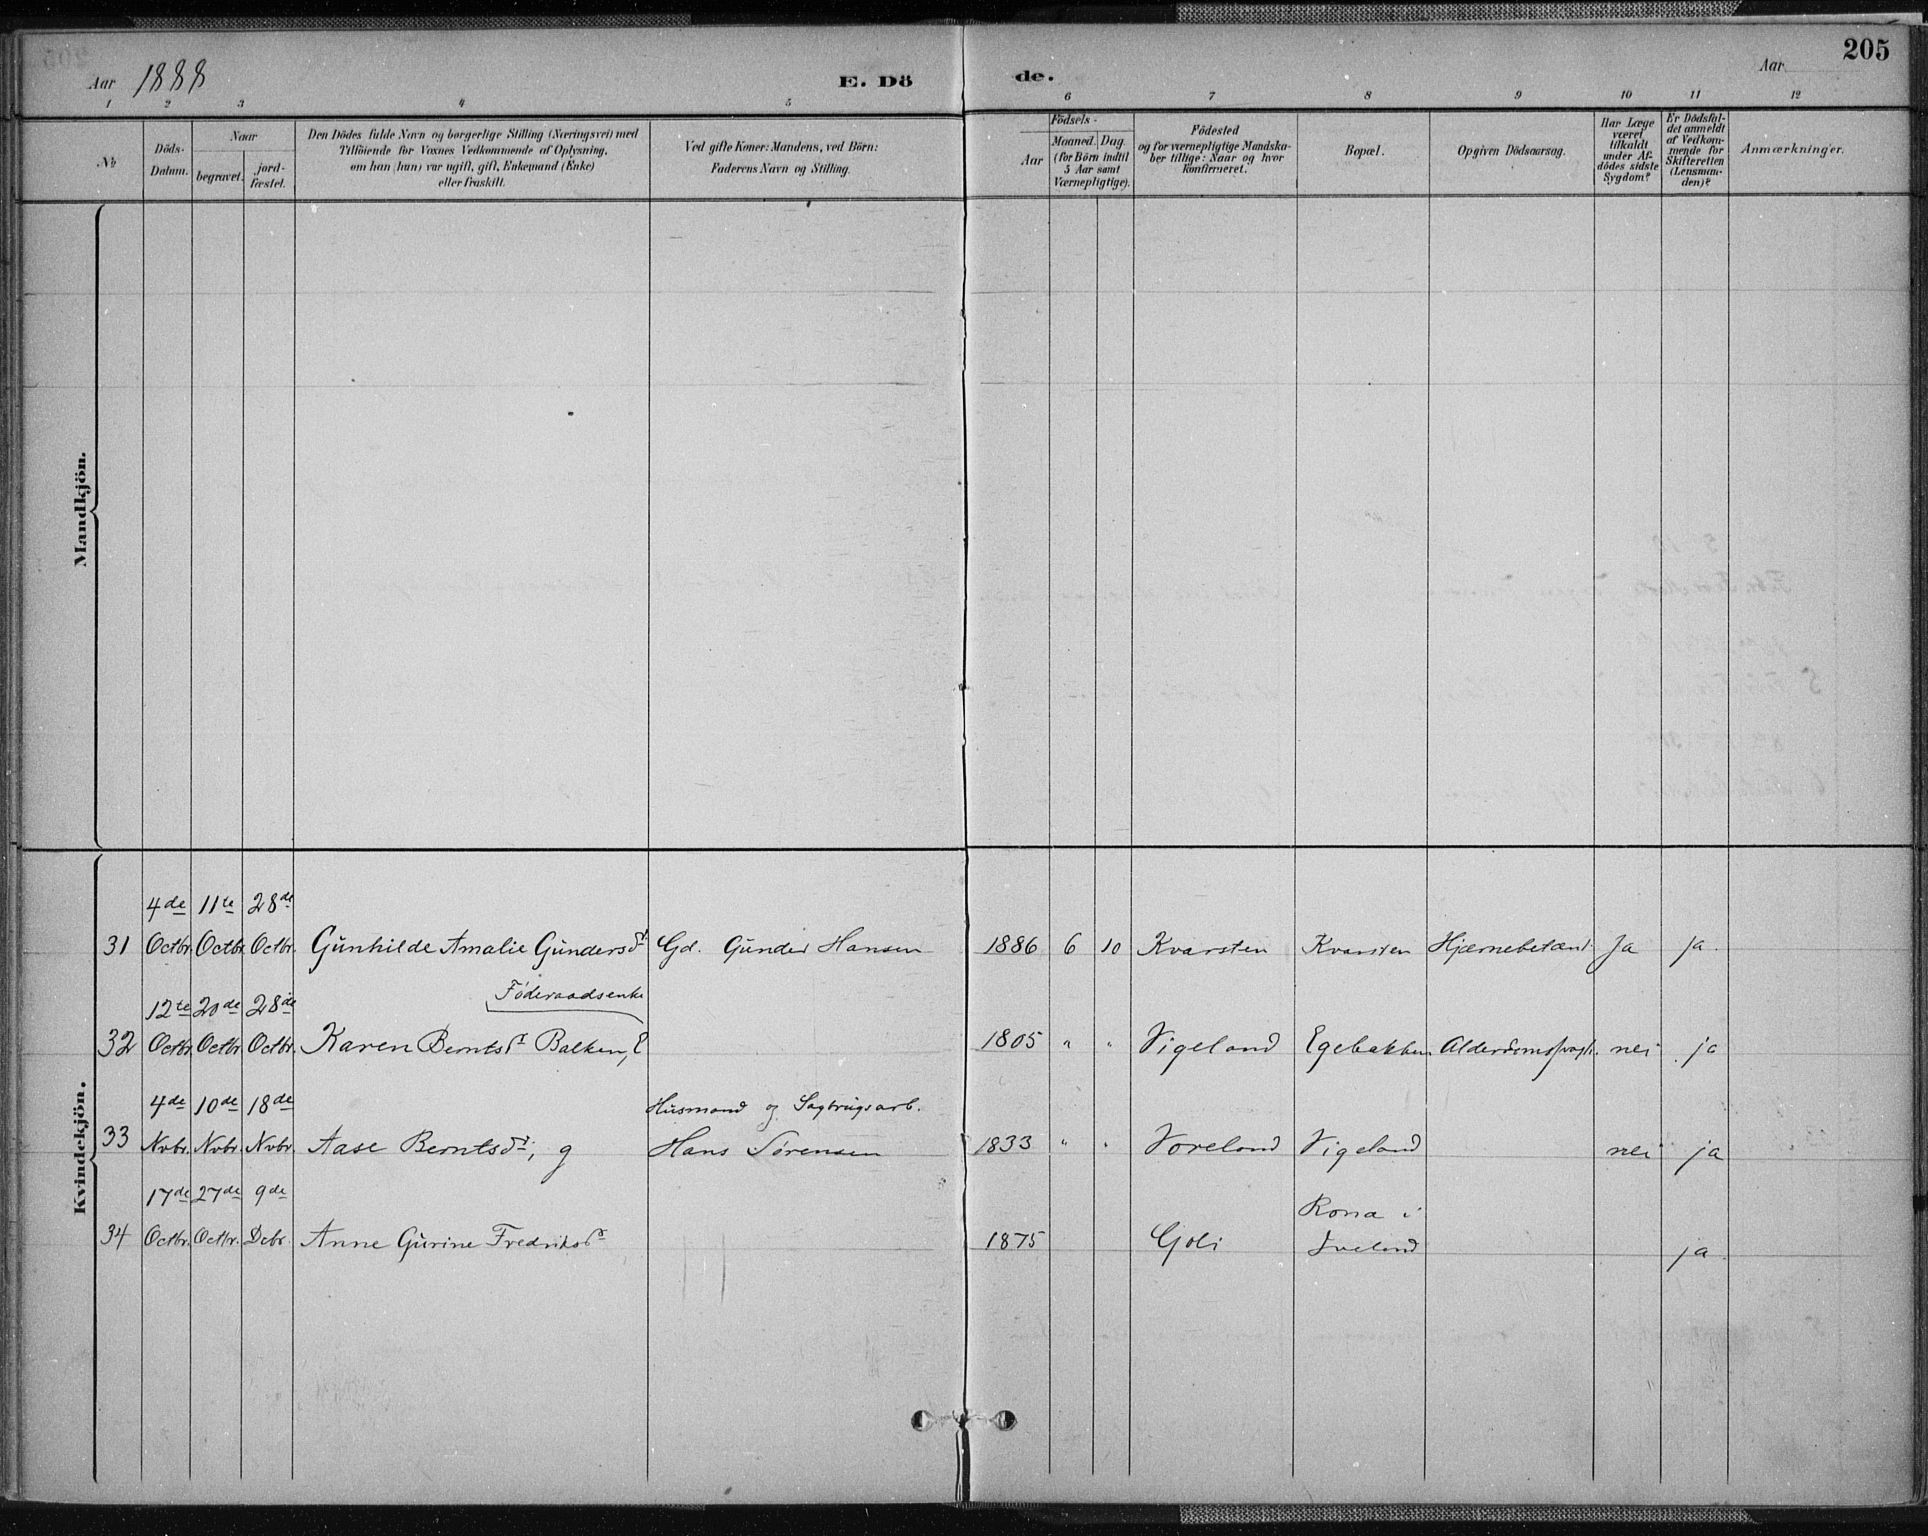 205
Aar 1888
E. Dö
de.
Aar
1 2 3 4 5 6 7 8 9 10 11 12
№
Döds-
Datum.
Naar
begravet.
jord-
fæstet.
Den Dödes fulde Navn og borgerlige Stilling (Næringsvei) med
Tilföiende for Voxnes Vedkommende af Oplysning,
om han (hun) var ugift, gift, Enkemand (Enke)
eller fraskilt.
Ved gifte Koner: Mandens, ved Börn:
Faderens Navn og Stilling.
Födsels-
Aar
Maaned. Dag.
(for Börn indtil
5 Aar samt
Værnepligtige).
Födested
og for værnepligtige Mandska-
ber tillige: Naar og hvor
konfirmeret.
Bopæl.
Opgiven Dödsaarsag.
Har Læge
været
tilkaldt
under Af-
dödes sidste
Sygdom?
Er Dödsfal-
det anmeldt
af Vedkom-
mende for
Skifteretten
(Lensman-
den)?
Anmærkninger.
Mandkjön.
Kvindekjön.
4de 11te 28de
31 Octbr. Octbr. Octbr. Gunhilde Amalie Gundersdt Gd. Gunder Hansen 1886 6 10 Kvarsten Kvarsten Hjærnebetænd. Ja ja.
Føderaadsenke
12te 20de 28de
32 Octbr. Octbr. Octbr. Karen Berntsdt Balken, E 1805 " " Vigeland Egebakken Alderdomssvagh. nei ja
4de 10de 18de Husmand og Sagbrugsarb.
33 Nvbr. Nvbr. Nvbr. Aase Berntsdt, g Hans Sørensen 1833 " " Voreland Vigeland nei ja
17de 27de 9de Rosa i
34 Octbr. Octbr. Dcbr. Anne Gurine Fredriksdt 1875 Goli Iveland ja.